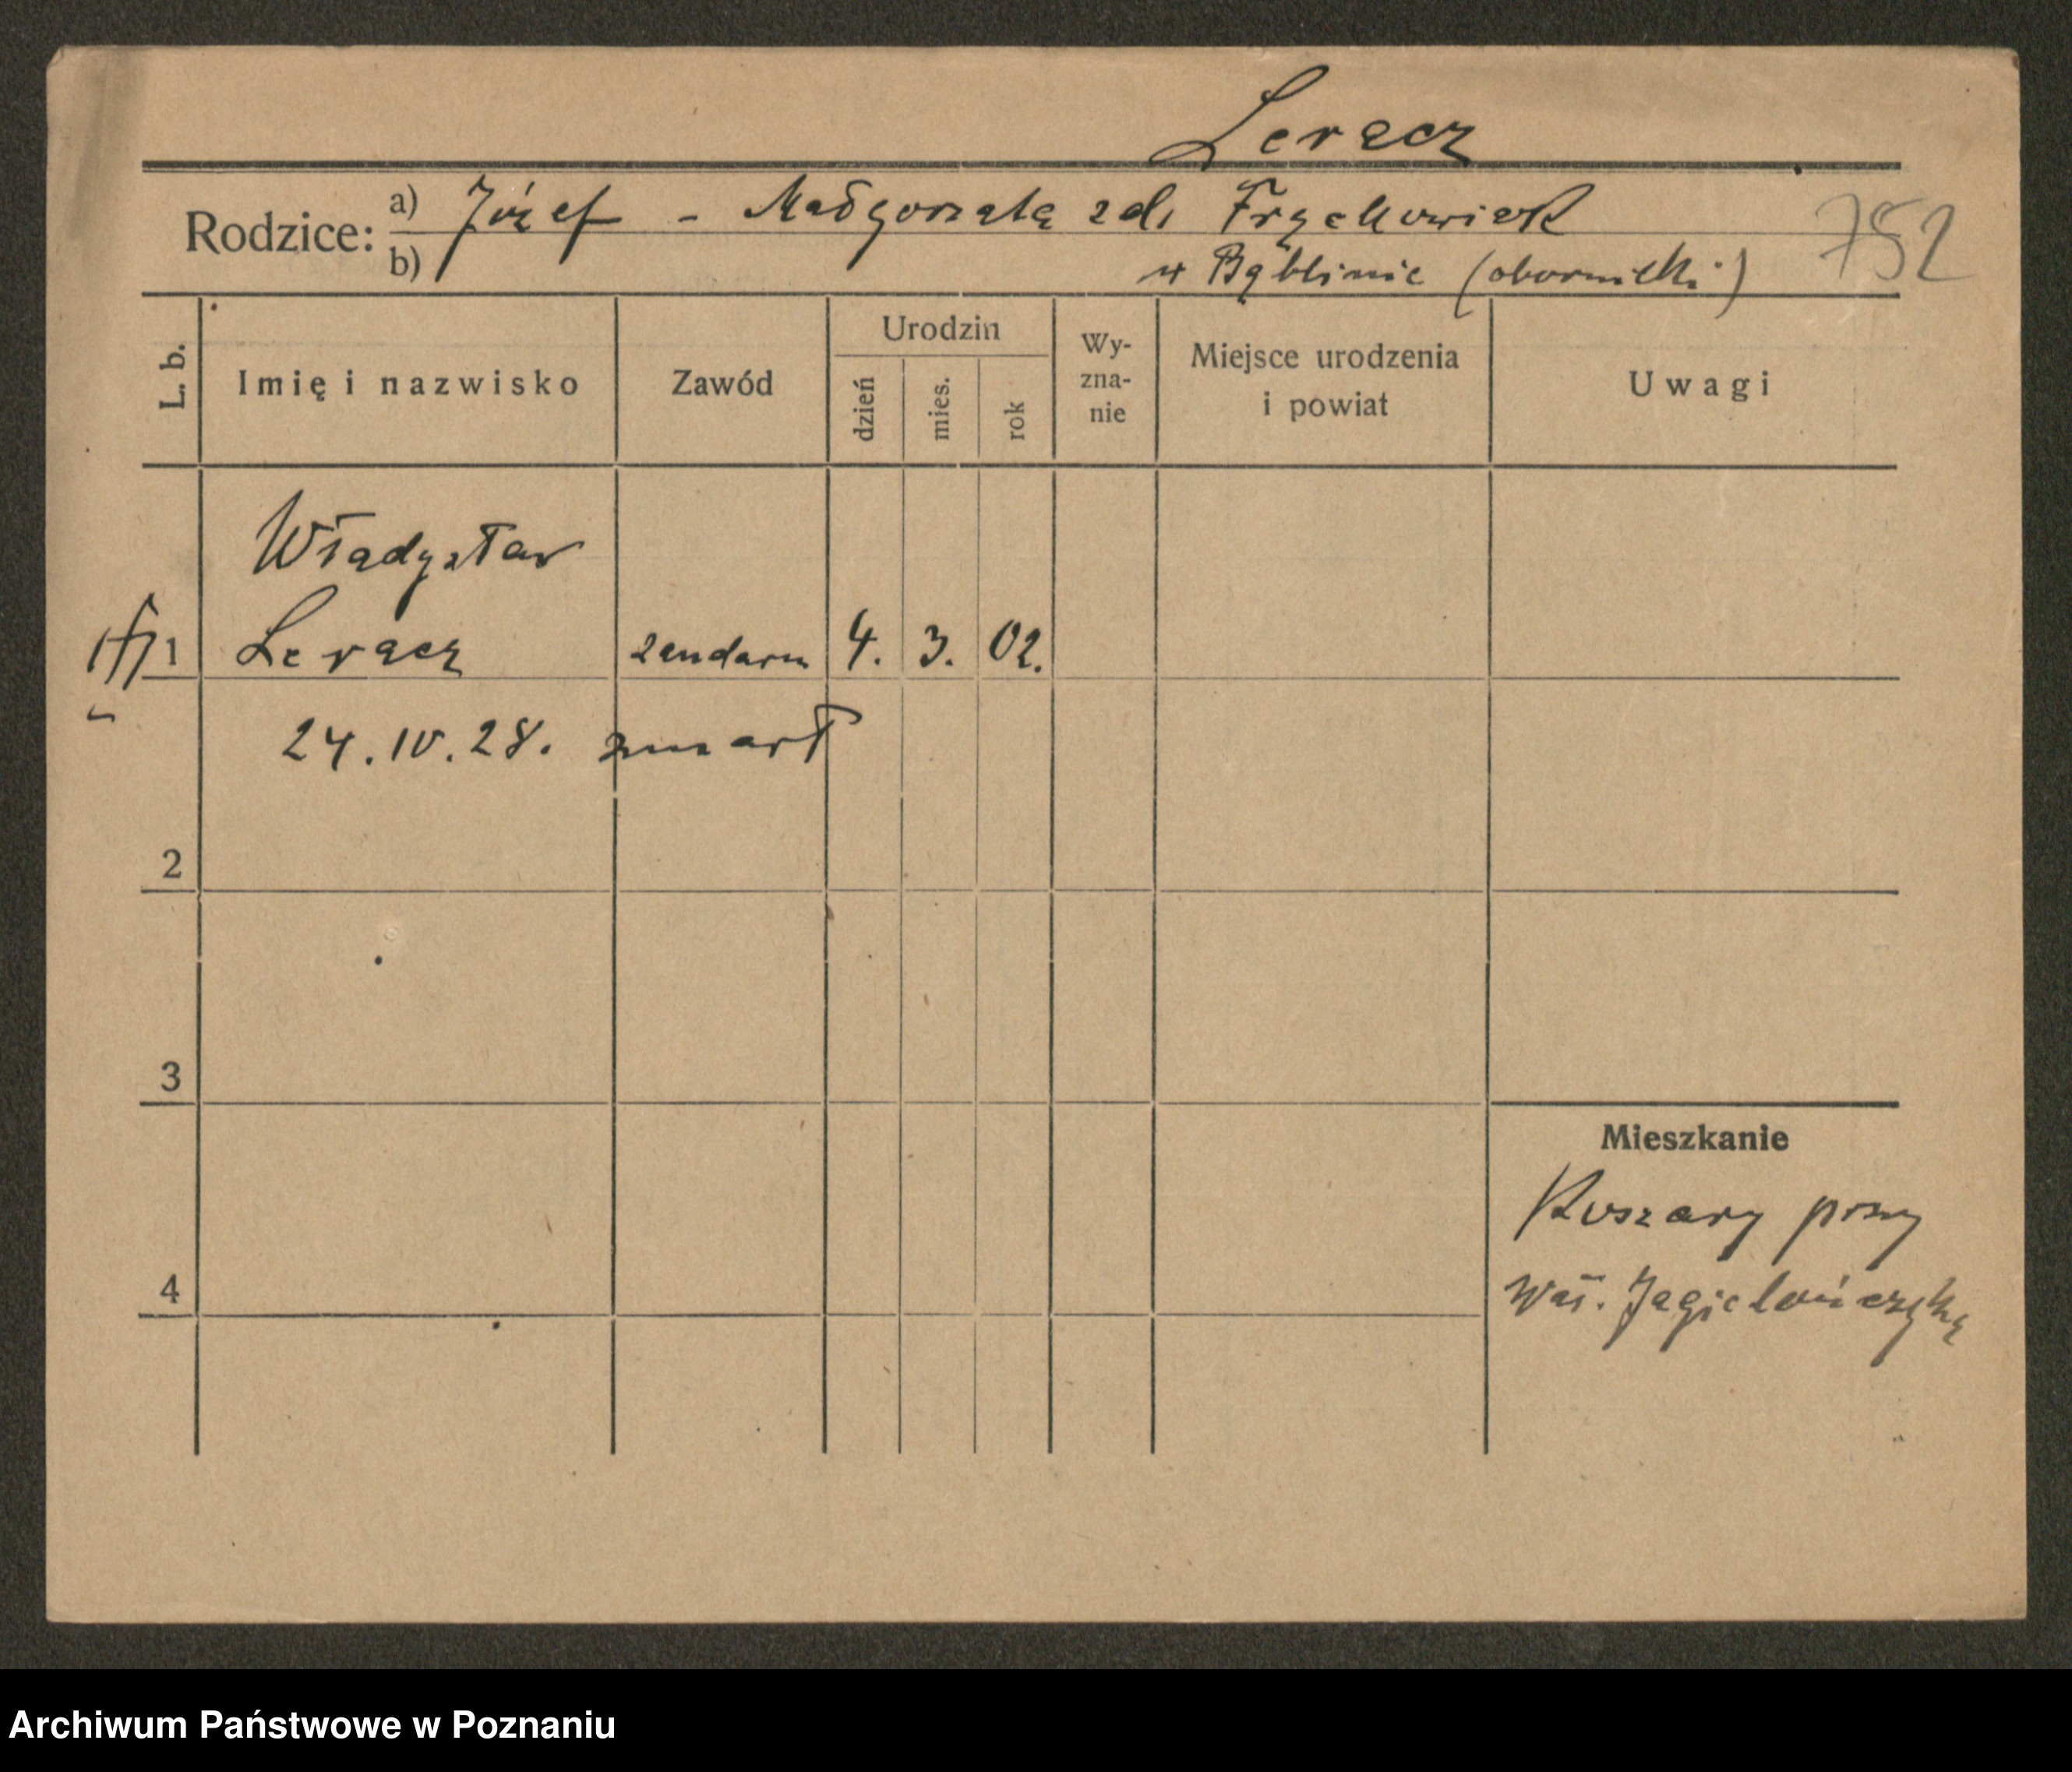 Leracz
Rodzice: a) Józef - Małgorzata zd. Frąckowiak
b) w Bąblinie (obornicki)
752
L. b.
Imię i nazwisko
Zawód
Urodzin
dzień
mies.
rok
Wy-
zna-
nie
Miejsce urodzenia
i powiat
Uwagi
Władysław
1 Leracz żandarm 4. 3. 02.
24. IV. 28. zmarł
2
3
Mieszkanie
Koszary przy
Wał. Jagielończyka
4
Archiwum Państwowe w Poznaniu